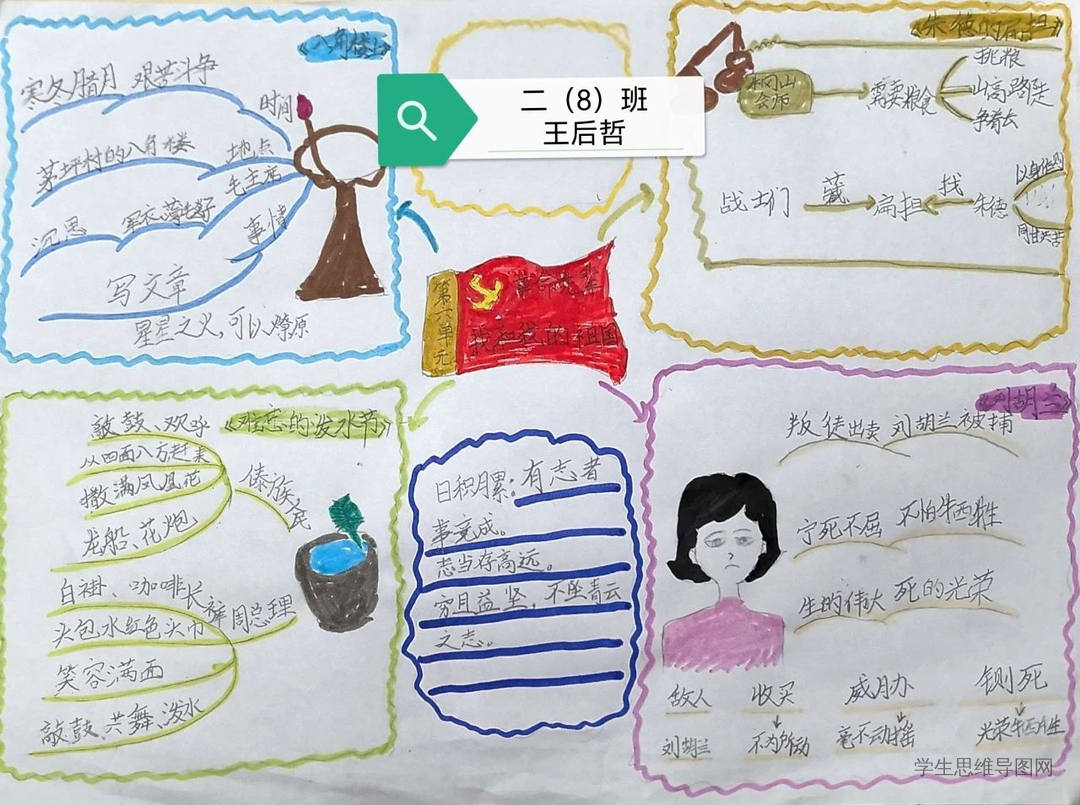 《八角楼上》
寒冬腊月 艰苦斗争
时间
茅坪村的八角楼 地点
毛主席
沉思 军衣 薄毛毯
事情
写文章
星星之火,可以燎原
二（8）班
王后哲
《朱德的扁担》
井冈山
会师
需要粮食
挑粮
山高路陡
争着去
战士们 藏 扁担 找 朱德
以身作则
同甘共苦
第六单元
革命先辈
我和我的祖国
《难忘的泼水节》
敲鼓、欢呼
从四面八方赶来
撒满凤凰花
龙船、花炮
傣族人民
白褂、咖啡长裤
头包水红色头巾
笑容满面
敲鼓、共舞、泼水
周总理
日积月累:有志者
事竟成。
志当存高远。
穷且益坚，不坠青云
之志。
《刘胡兰》
叛徒出卖 刘胡兰被捕
宁死不屈 不怕牺牲
生的伟大 死的光荣
敌人 收买 威胁 铡死
刘胡兰 不为所动 毫不动摇 光荣牺牲
学生思维导图网